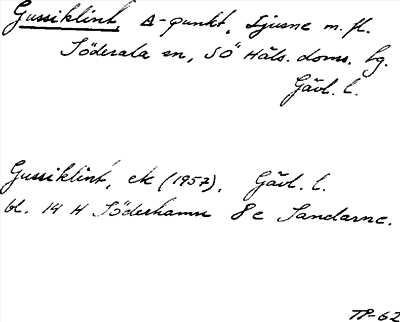 Gussiklint, Δ-punkt, Ljusne m. fl.
Söderala sn, SÖ Häls. doms. lg.
Gävl. l.
Gussiklint, ek (1957), Gävl. l.
bl. 14 H Söderhamn 8c Sandarne.
TP-62